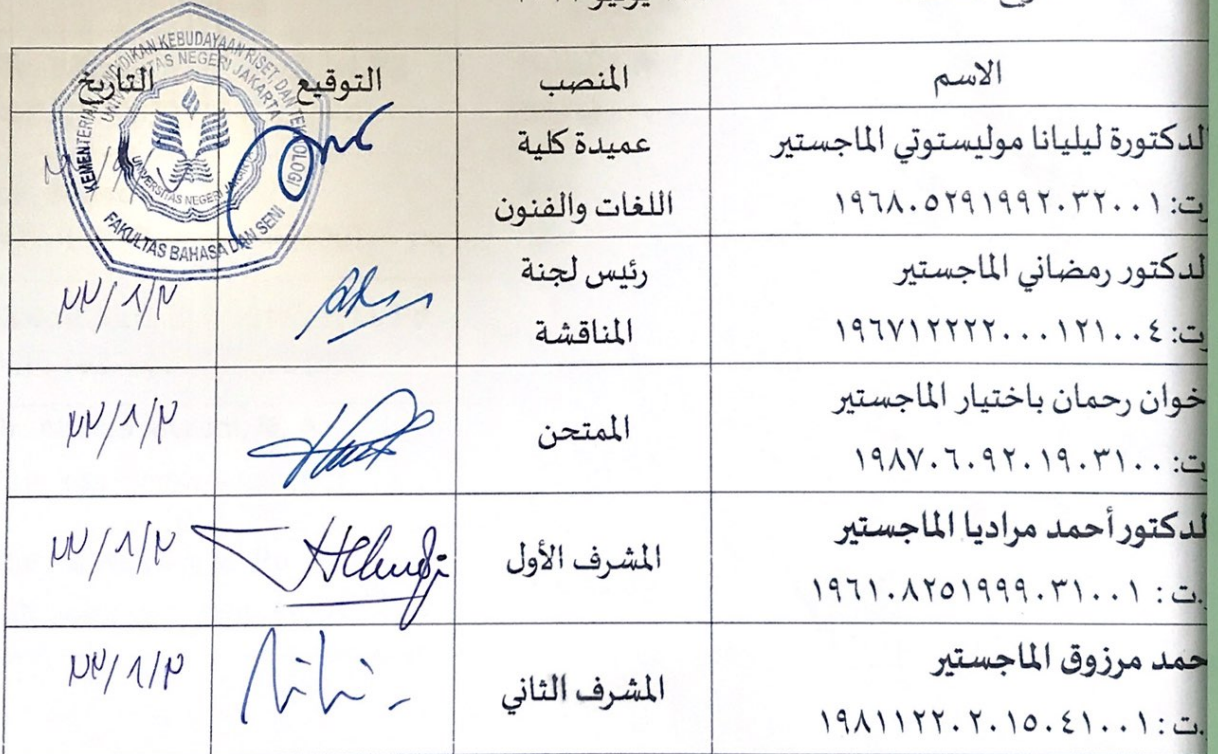 الاسم المنصب التوقيع التاريخ
لدكتورة ليليانا موليستوتي الماجستير
ت: ١٩٦٨٠٥٢٩١٩٩٢٠٣٢٠٠١
عميدة كلية
اللغات والفنون
لدكتور رمضاني الماجستير
ت: ١٩٦٧١٢٢٢٢٠٠٠١٢١٠٠٤
رئيس لجنة
المناقشة
٢٢/٨/٢
خوان رحمان باختيار الماجستير
ت: ١٩٨٧٠٦٠٩٢٠١٩٠٣١٠٠
الممتحن
٢٢/٨/٢
لدكتور أحمد مراديا الماجستير
.ت : ١٩٦١٠٨٢٥١٩٩٩٠٣١٠٠١
المشرف الأول
٢٢/٨/٢
حمد مرزوق الماجستير
.ت : ١٩٨١١٢٢٠٢٠١٥٠٤١٠٠١
المشرف الثاني
٢٢/٨/٢
UNIVERSITAS NEGERI JAKARTA
UNIVERSITAS NEGERI
FAKULTAS BAHASA DAN SENI